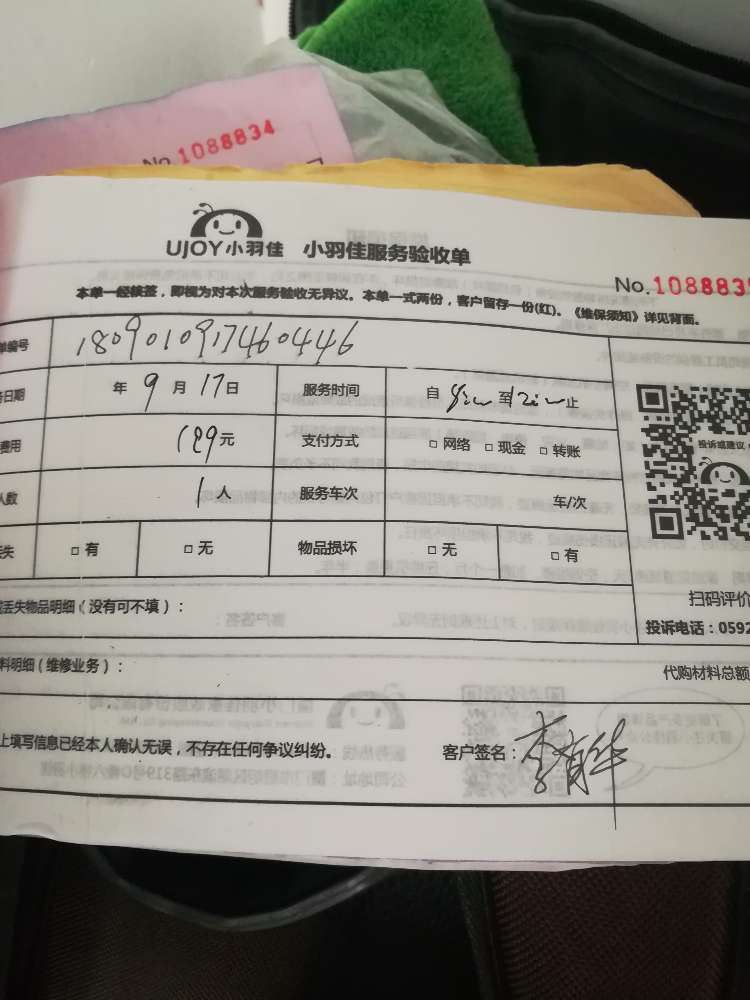 No. 1088834
UJOY小羽佳 小羽佳服务验收单
No. 108883
本单一经核签，即视为对本次服务验收无异议。本单一式两份，客户留存一份(红)。《维保须知》详见背面。
单编号 1809010917460446
务日期 年 9 月 17 日 服务时间 自 至 止
费用 189 元 支付方式 □ 网络 □ 现金 □ 转账
人数 1 人 服务车次 车/次
投诉或建议
丢失 □ 有 □ 无 物品损坏 □ 无 □ 有
扫码评价
丢失物品明细（没有可不填）：
投诉电话：0592
料明细（维修业务）：
代购材料总额
上填写信息已经本人确认无误，不存在任何争议纠纷。 客户签名：李有华